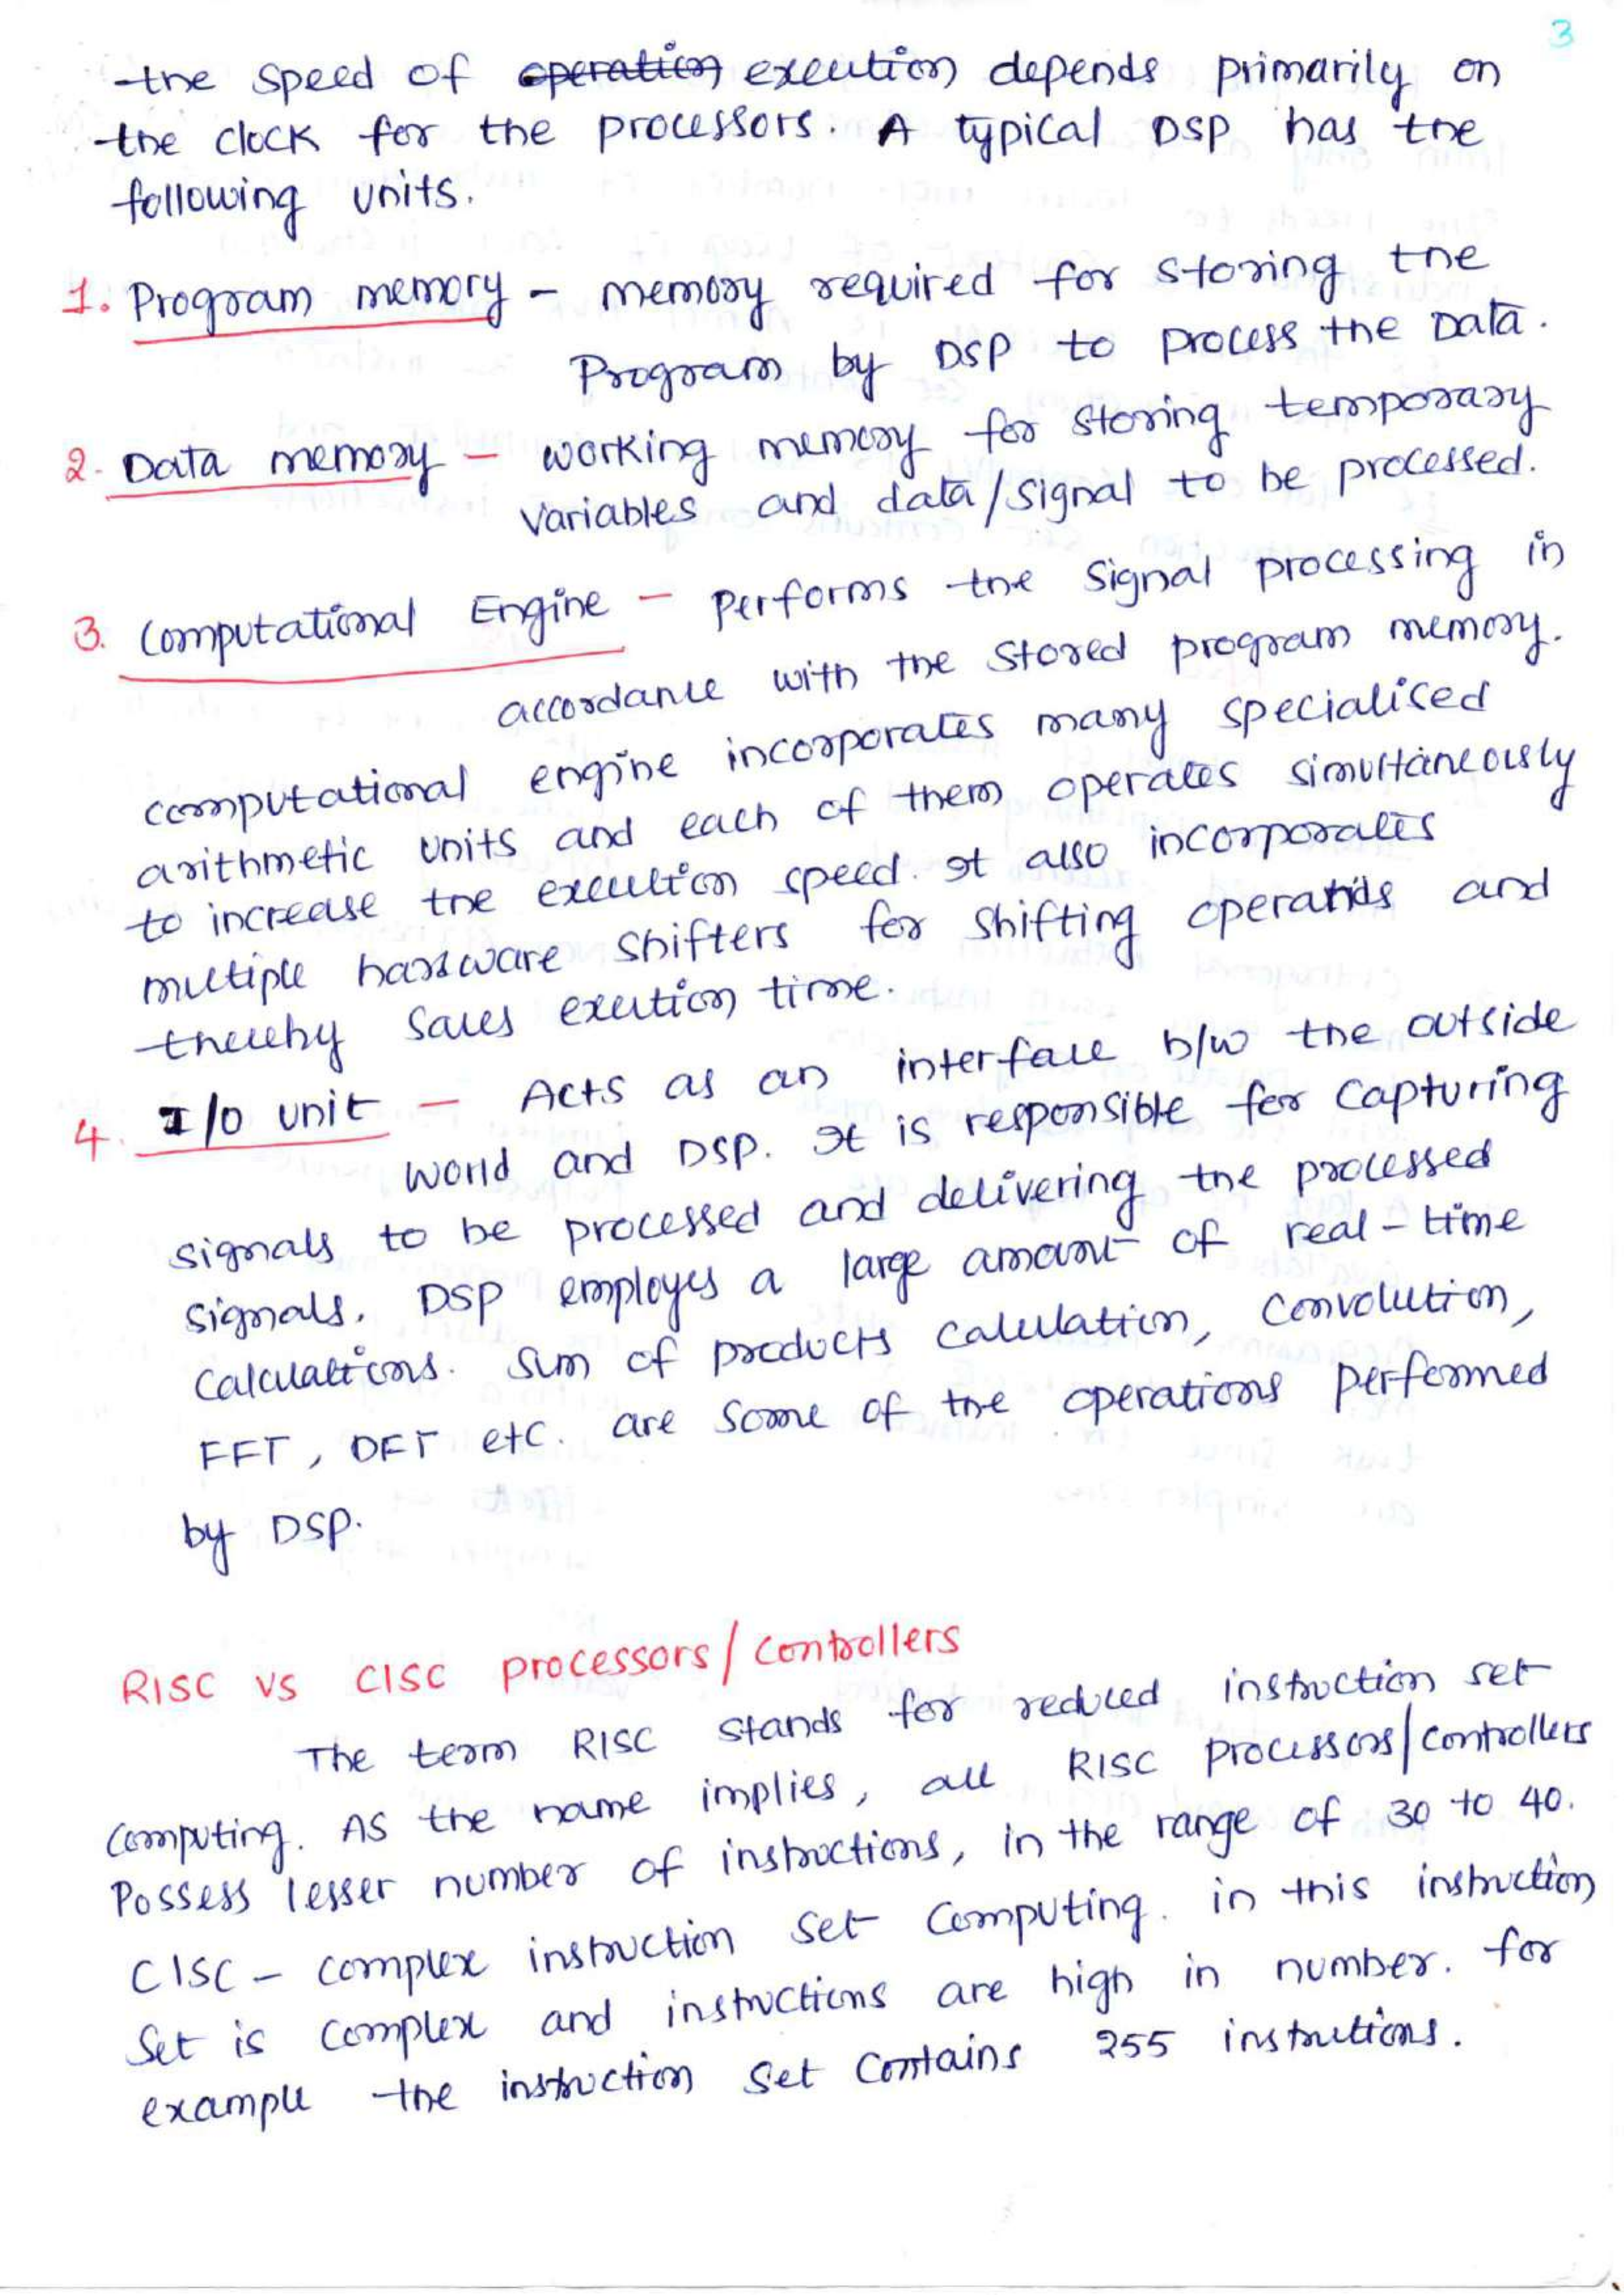 3
the speed of operation execution depends primarily on
the clock for the processors. A typical DSP has the
following units.
1. Program memory - memory required for storing the
Program by DSP to process the Data.
2. Data memory - working memory for storing temporary
variables and data/signal to be processed.
3. Computational Engine - performs the signal processing in
accordance with the stored program memory.
computational engine incorporates many specialised
arithmetic units and each of them operates simultaneously
to increase the execution speed. It also incorporates
multiple hardware shifters for shifting operands and
thereby saves exeution time.
4. I/O unit - Acts as an interface b/w the outside
world and DSP. It is responsible for capturing
signals to be processed and delivering the processed
signals. DSP employes a large amount of real-time
calculations. Sum of products calculation, Convolution,
FFT, DFT etc. are some of the operations performed
by DSP.
RISC vs CISC processors/controllers
The term RISC stands for reduced instruction set
Computing. As the name implies, all RISC processors/controllers
Possess lesser number of instructions, in the range of 30 to 40.
CISC - complex instruction set computing. in this instruction
Set is complex and instructions are high in number. for
example the instruction set contains 255 instrutions.